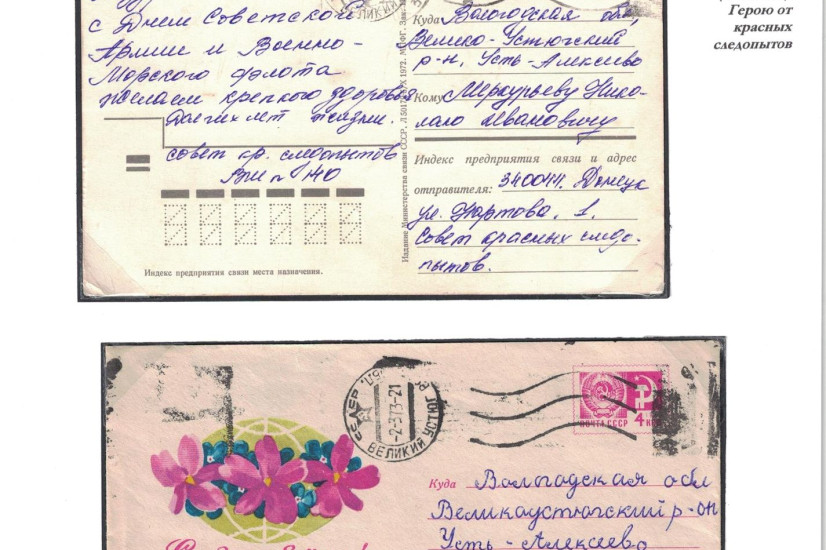 Герою от
красных
следопытов
с Днем Советской
Армии и Военно-
Морского флота
желаем крепкого здоровья
долгих лет жизни.
совет кр. следопытов
140
Индекс предприятия связи места назначения.
Издание Министерства связи СССР.
1972.
ВЕЛИКИЙ
Куда Вологодская обл,
Велико-Устюгский
р-н, Усть-Алексеево
Кому Меркурьеву Нико-
лаю Ивановичу
Индекс предприятия связи и адрес
отправителя: 340044. Донецк
ул. 1.
Совет красных следо-
пытов.
СССР
-2-373-21
ВЕЛИКИЙ УСТЮГ
ПОЧТА СССР
4 КОП
Куда Вологодская обл
Великоустюгский р-он
Усть-Алексеево